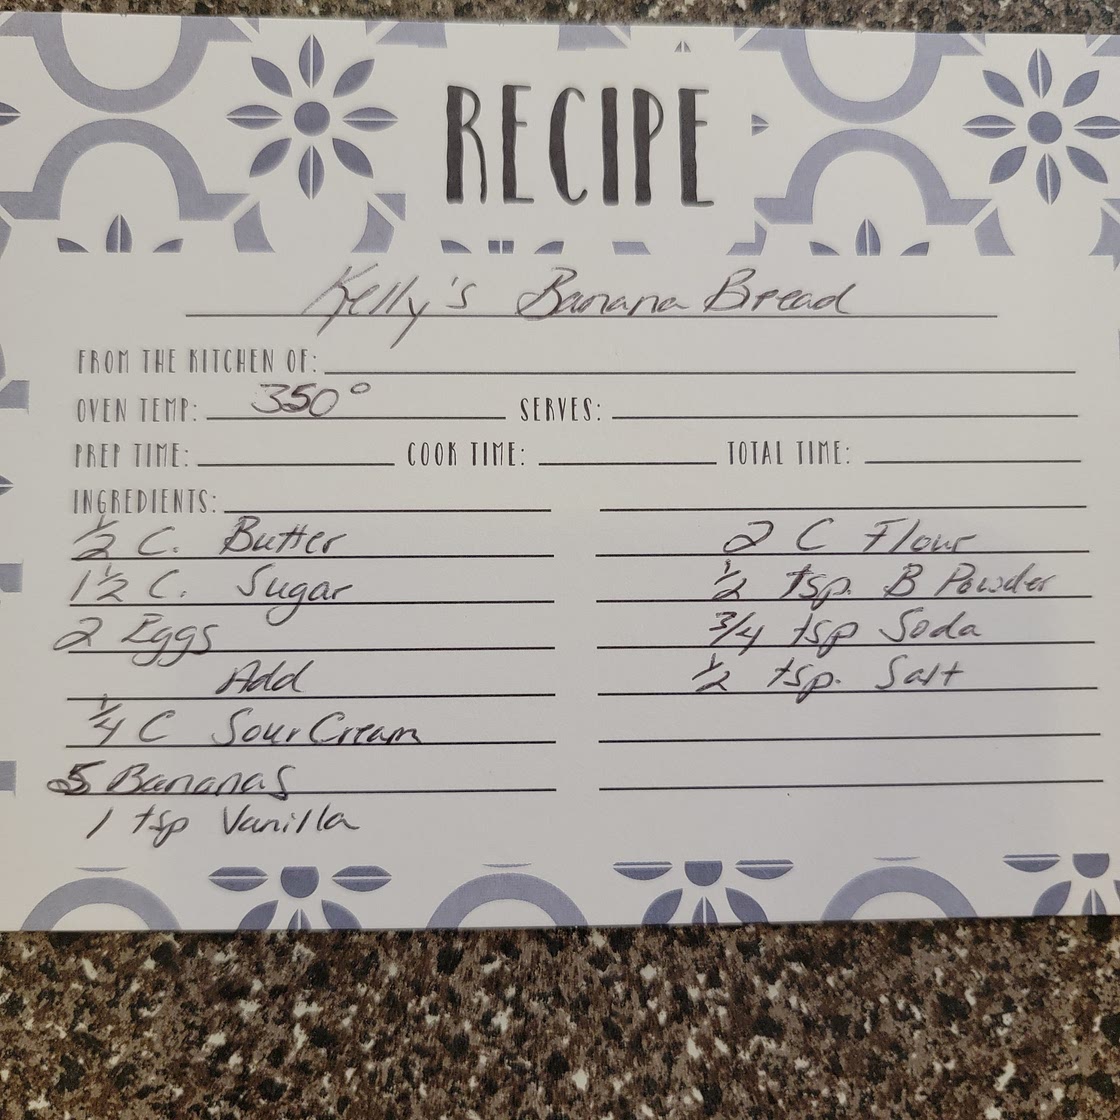 RECIPE
Kelly's Banana Bread
FROM THE KITCHEN OF:
OVEN TEMP: 350° SERVES:
PREP TIME: COOK TIME: TOTAL TIME:
INGREDIENTS:
1/2 C. Butter
1 1/2 C. Sugar
2 Eggs
Add
1/4 C Sour Cream
5 Bananas
1 tsp Vanilla
2 C Flour
1/2 tsp. B Powder
3/4 tsp Soda
1/2 tsp. Salt